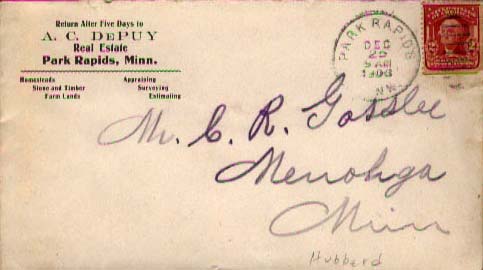 Return After Five Days to
A. C. DePUY
Real Estate
Park Rapids, Minn.
Homesteads
Stone and Timber
Farm Lands
Appraising
Surveying
Estimating
PARK RAPIDS
DEC
9 AM
Mr. C. R. Gosslee
Menohga
Minn
Hubbard